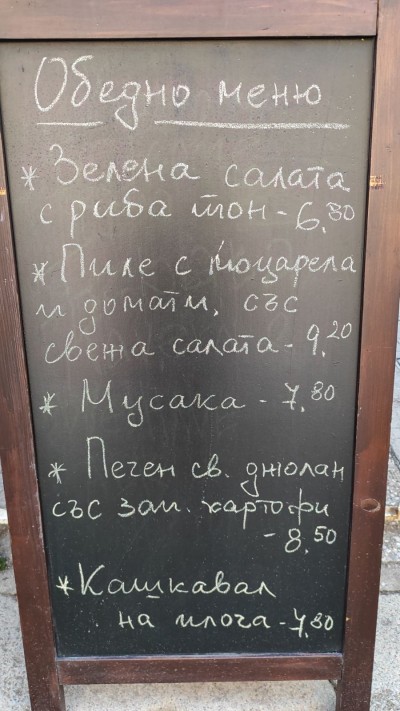 Обедно меню
* Зелена салата
с риба тон - 6,80
* Пиле с моцарела
и домати, със
свежа салата - 9,20
* Мусака - 7,80
* Печен св. джолан
със зап. картофи
- 8,50
* Кашкавал
на плоча - 7,80